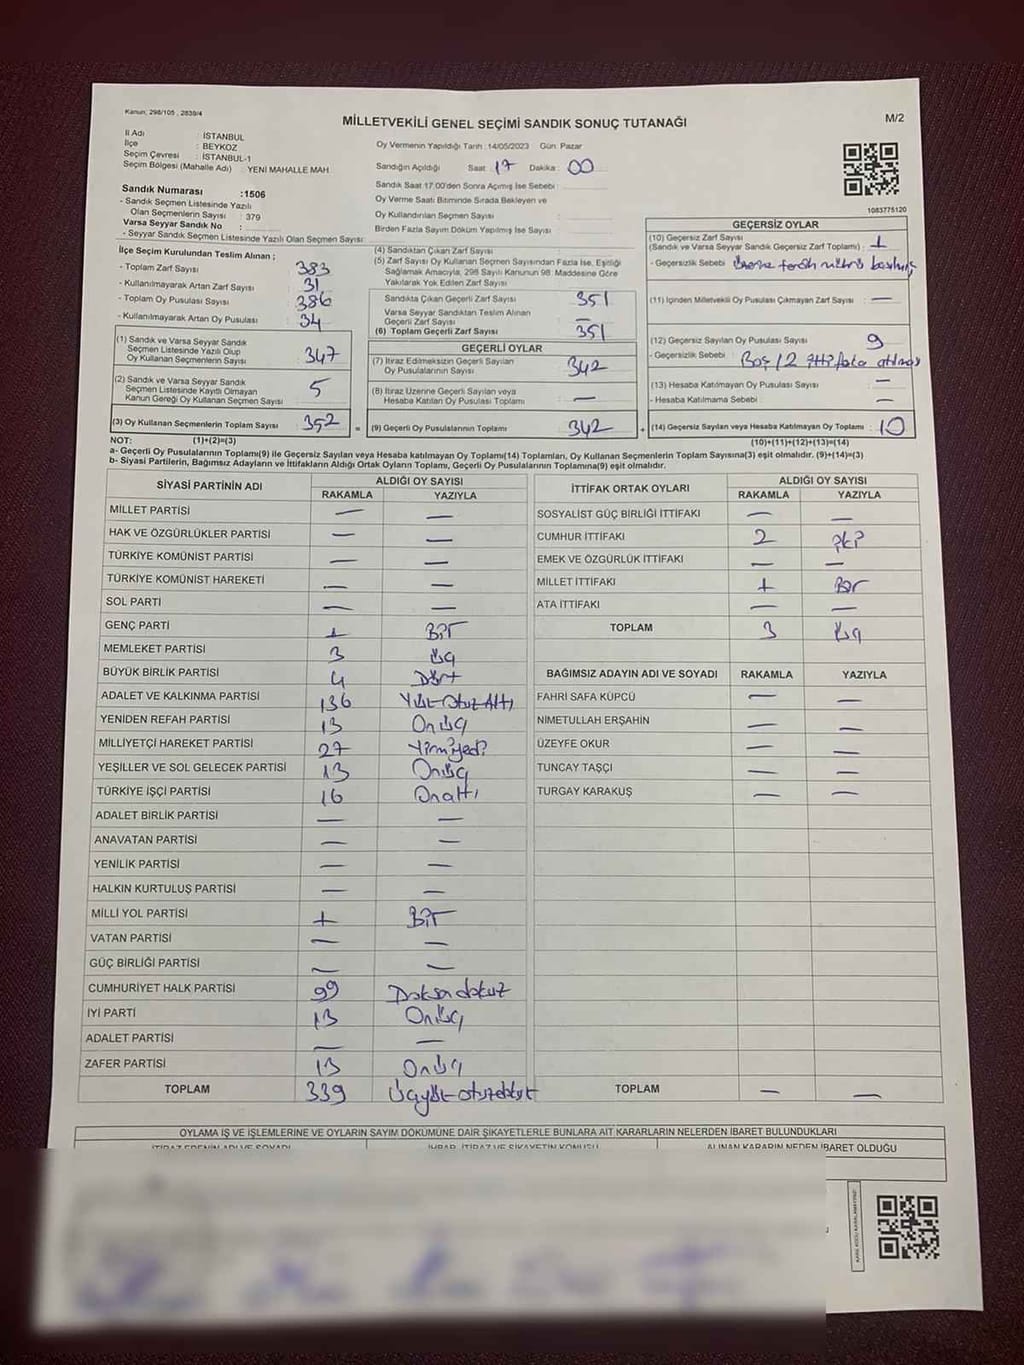 Kanun; 298/105 , 2839/4
M/2
MİLLETVEKİLİ GENEL SEÇİMİ SANDIK SONUÇ TUTANAĞI
İl Adı : İSTANBUL
İlçe : BEYKOZ
Seçim Çevresi : İSTANBUL-1
Seçim Bölgesi (Mahalle Adı) : YENİ MAHALLE MAH.
Sandık Numarası :1506
- Sandık Seçmen Listesinde Yazılı
Olan Seçmenlerin Sayısı : 379
Varsa Seyyar Sandık No :
- Seyyar Sandık Seçmen Listesinde Yazılı Olan Seçmen Sayısı:
Oy Vermenin Yapıldığı Tarih :14/05/2023 Gün: Pazar
Sandığın Açıldığı Saat : 17 Dakika : 00
Sandık Saat 17:00'den Sonra Açımış İse Sebebi :
Oy Verme Saati Bitiminde Sırada Bekleyen ve
Oy Kullandırılan Seçmen Sayısı :
Birden Fazla Sayım Döküm Yapılmış İse Sayısı :
1083775120
İlçe Seçim Kurulundan Teslim Alınan ;
- Toplam Zarf Sayısı : 383
- Kullanılmayarak Artan Zarf Sayısı : 31
- Toplam Oy Pusulası Sayısı : 386
- Kullanılmayarak Artan Oy Pusulası : 34
(1) Sandık ve Varsa Seyyar Sandık
Seçmen Listesinde Yazılı Olup
Oy Kullanan Seçmenlerin Sayısı : 347
(2) Sandık ve Varsa Seyyar Sandık
Seçmen Listesinde Kayıtlı Olmayan
Kanun Gereği Oy Kullanan Seçmen Sayısı : 5
(3) Oy Kullanan Seçmenlerin Toplam Sayısı : 352
(4) Sandıktan Çıkan Zarf Sayısı :
(5) Zarf Sayısı Oy Kullanan Seçmen Sayısından Fazla İse, Eşitliği
Sağlamak Amacıyla, 298 Sayılı Kanunun 98. Maddesine Göre
Yakılarak Yok Edilen Zarf Sayısı :
Sandıkta Çıkan Geçerli Zarf Sayısı : 351
Varsa Seyyar Sandıktan Teslim Alınan
Geçerli Zarf Sayısı : —
(6) Toplam Geçerli Zarf Sayısı : 351
GEÇERLİ OYLAR
(7) İtiraz Edilmeksizin Geçerli Sayılan
Oy Pusulalarının Sayısı : 342
(8) İtiraz Üzerine Geçerli Sayılan veya
Hesaba Katılan Oy Pusulası Toplamı : —
= (9) Geçerli Oy Pusulalarının Toplamı : 342
GEÇERSİZ OYLAR
(10) Geçersiz Zarf Sayısı
(Sandık ve Varsa Seyyar Sandık Geçersiz Zarf Toplamı) : 1
- Geçersizlik Sebebi : Üzerine tercih mührü basılmış
(11) İçinden Milletvekili Oy Pusulası Çıkmayan Zarf Sayısı : —
(12) Geçersiz Sayılan Oy Pusulası Sayısı : 9
- Geçersizlik Sebebi : Boş / 2 ittifaka atılmış
(13) Hesaba Katılmayan Oy Pusulası Sayısı : —
- Hesaba Katılmama Sebebi : —
+ (14) Geçersiz Sayılan veya Hesaba Katılmayan Oy Toplamı : 10
NOT: (1)+(2)=(3) (10)+(11)+(12)+(13)=(14)
a- Geçerli Oy Pusulalarının Toplamı(9) ile Geçersiz Sayılan veya Hesaba katılmayan Oy Toplamı(14) Toplamları, Oy Kullanan Seçmenlerin Toplam Sayısına(3) eşit olmalıdır. (9)+(14)=(3)
b- Siyasi Partilerin, Bağımsız Adayların ve İttifakların Aldığı Ortak Oyların Toplamı, Geçerli Oy Pusulalarının Toplamına(9) eşit olmalıdır.
SİYASİ PARTİNİN ADI ALDIĞI OY SAYISI
RAKAMLA YAZIYLA
MİLLET PARTİSİ — —
HAK VE ÖZGÜRLÜKLER PARTİSİ — —
TÜRKİYE KOMÜNİST PARTİSİ — —
TÜRKİYE KOMÜNİST HAREKETİ — —
SOL PARTİ — —
GENÇ PARTİ 1 BİR
MEMLEKET PARTİSİ 3 üç
BÜYÜK BİRLİK PARTİSİ 4 Dört
ADALET VE KALKINMA PARTİSİ 136 Yüz Otuz Altı
YENİDEN REFAH PARTİSİ 13 Onüç
MİLLİYETÇİ HAREKET PARTİSİ 27 Yirmiyedi
YEŞİLLER VE SOL GELECEK PARTİSİ 13 Onüç
TÜRKİYE İŞÇİ PARTİSİ 16 Onaltı
ADALET BİRLİK PARTİSİ — —
ANAVATAN PARTİSİ — —
YENİLİK PARTİSİ — —
HALKIN KURTULUŞ PARTİSİ — —
MİLLİ YOL PARTİSİ 1 BİR
VATAN PARTİSİ — —
GÜÇ BİRLİĞİ PARTİSİ — —
CUMHURİYET HALK PARTİSİ 99 Doksandokuz
İYİ PARTİ 13 Onüç
ADALET PARTİSİ — —
ZAFER PARTİSİ 13 Onüç
TOPLAM 339 Üçyüzotuzdokuz
İTTİFAK ORTAK OYLARI ALDIĞI OY SAYISI
RAKAMLA YAZIYLA
SOSYALİST GÜÇ BİRLİĞİ İTTİFAKI — —
CUMHUR İTTİFAKI 2 İki
EMEK VE ÖZGÜRLÜK İTTİFAKI — —
MİLLET İTTİFAKI 1 Bir
ATA İTTİFAKI — —
TOPLAM 3 Üç
BAĞIMSIZ ADAYIN ADI VE SOYADI RAKAMLA YAZIYLA
FAHRİ SAFA KÜPCÜ — —
NİMETULLAH ERŞAHİN — —
ÜZEYFE OKUR — —
TUNCAY TAŞÇI — —
TURGAY KARAKUŞ — —
TOPLAM — —
OYLAMA İŞ VE İŞLEMLERİNE VE OYLARIN SAYIM DÖKÜMÜNE DAİR ŞİKAYETLERLE BUNLARA AİT KARARLARIN NELERDEN İBARET BULUNDUKLARI
İTİRAZ EDENİN ADI VE SOYADI İHBAR, İTİRAZ VE ŞİKAYETİN KONUSU ALINAN KARARIN NEDEN İBARET OLDUĞU